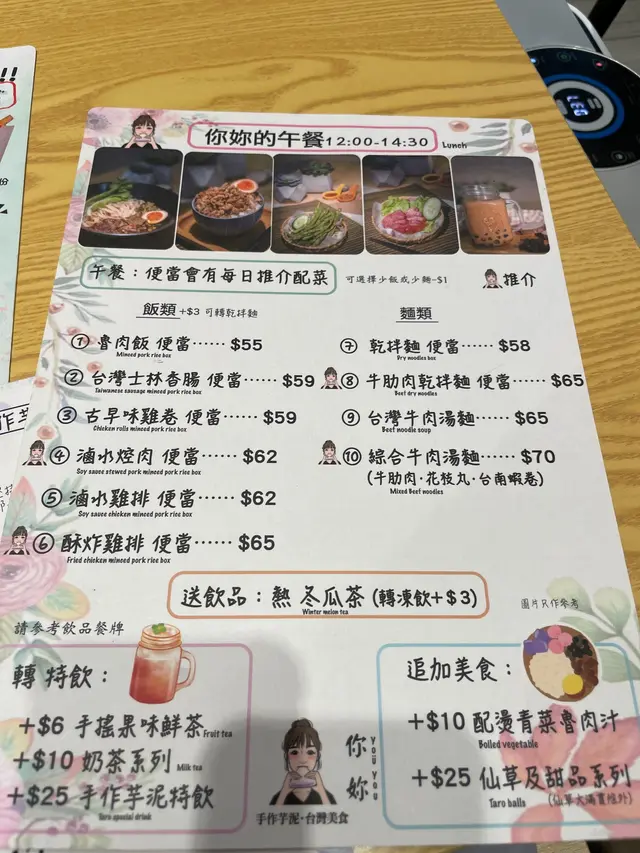 你妳的午餐12:00-14:30 Lunch
午餐：便當會有每日推介配菜
可選擇少飯或少麵-$1
推介
飯類 +$3 可轉乾拌麵
① 魯肉飯 便當⋯⋯ $55
Minced pork rice box
② 台灣士林香腸 便當⋯⋯ $59
Taiwanese sausage minced pork rice box
③ 古早味雞卷 便當⋯⋯ $59
Chicken rolls minced pork rice box
④ 滷水焢肉 便當⋯⋯ $62
Soy sauce stewed pork minced pork rice box
⑤ 滷水雞排 便當⋯⋯ $62
Soy sauce chicken minced pork rice box
⑥ 酥炸雞排 便當⋯⋯ $65
Fried chicken minced pork rice box
麵類
⑦ 乾拌麵 便當⋯⋯ $58
Dry noodles box
⑧ 牛肋肉乾拌麵 便當⋯⋯ $65
Beef dry noodles
⑨ 台灣牛肉湯麵⋯⋯ $65
Beef noodle soup
⑩ 綜合牛肉湯麵⋯⋯ $70
(牛肋肉·花枝丸·台南蝦卷)
Mixed Beef noodles
送飲品：熱 冬瓜茶 (轉凍飲+$3)
Winter melon tea
圖片只作參考
請參考飲品餐牌
轉 特飲：
+$6 手搖果味鮮茶 Fruit tea
+$10 奶茶系列 Milk tea
+$25 手作芋泥特飲
Taro special drink
你妳
YOU YOU
手作芋泥·台灣美食
追加美食：
+$10 配燙青菜魯肉汁
Boiled vegetable
+$25 仙草及甜品系列
Taro balls (仙草大滿貫除外)